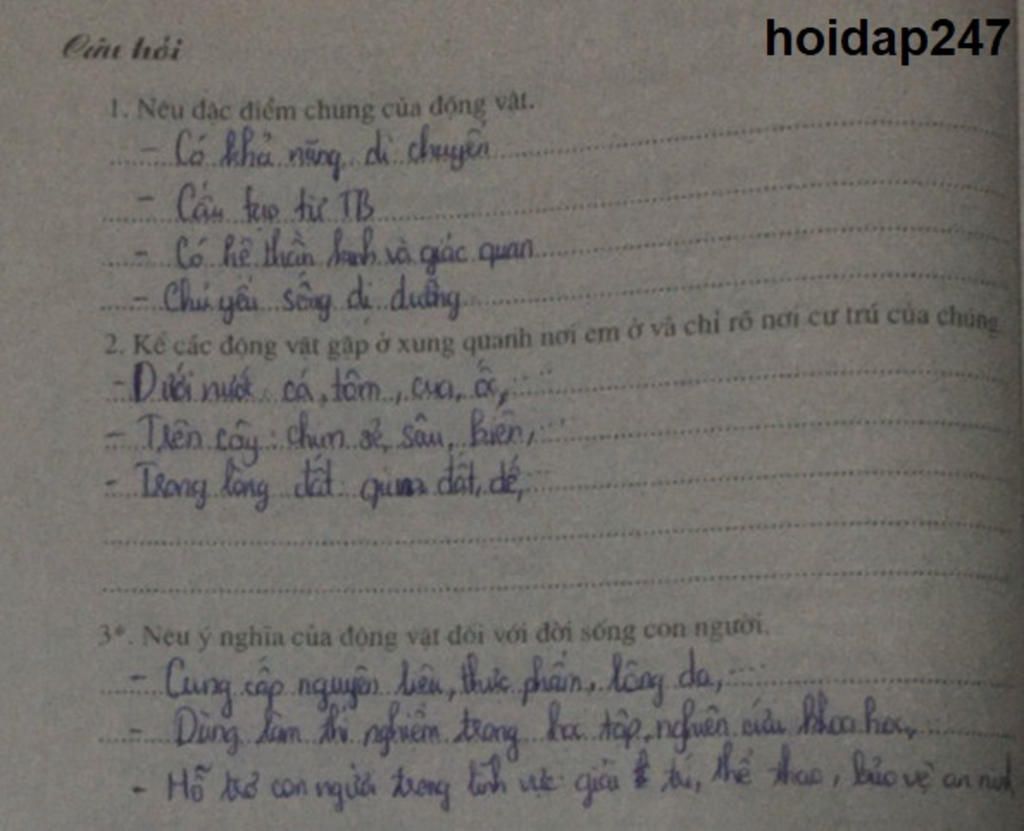 Câu hỏi
hoidap247
1. Nêu đặc điểm chung của động vật.
- Có khả năng di chuyển
- Cấu tạo từ TB
- Có hệ thần kinh và giác quan
- Chủ yếu sống dị dưỡng
2. Kể các động vật gặp ở xung quanh nơi em ở và chỉ rõ nơi cư trú của chúng
- Dưới nước: cá, tôm, cua, ốc,...
- Trên cây: chim sẻ, sâu, kiến,...
- Trong lòng đất: giun đất, dế,...
3*. Nêu ý nghĩa của động vật đối với đời sống con người.
- Cung cấp nguyên liệu, thực phẩm, lông da,...
- Dùng làm thí nghiệm trong học tập, nghiên cứu khoa học,...
- Hỗ trợ con người trong lĩnh vực giải trí, thể thao, bảo vệ an ninh